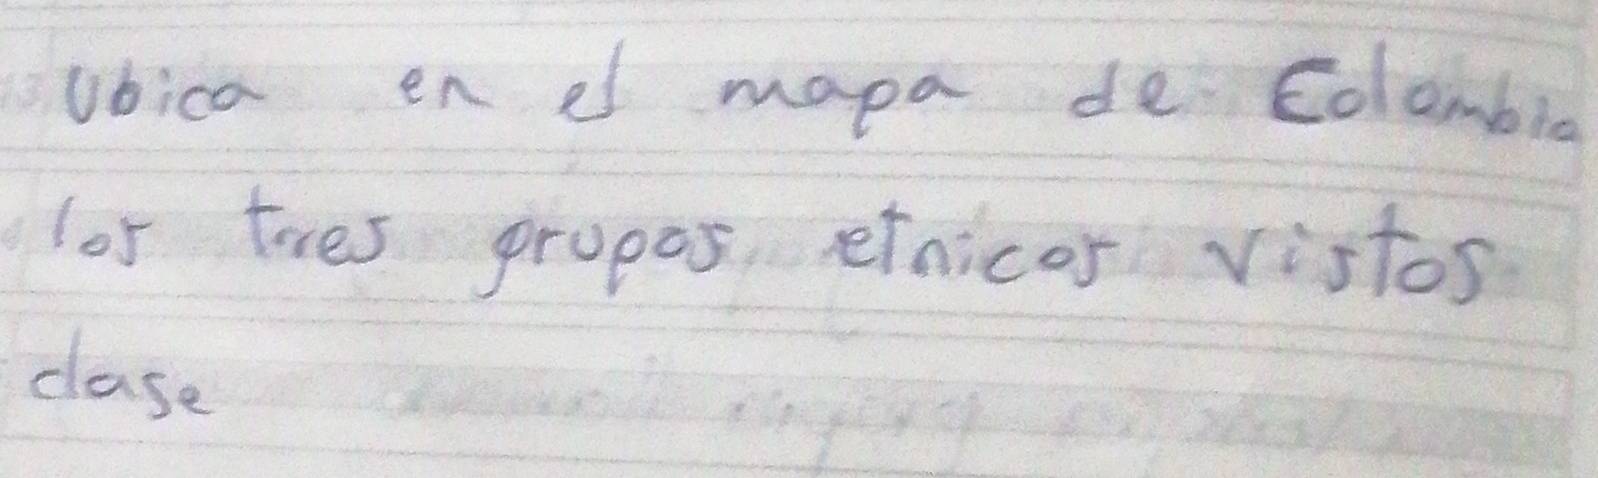 Ubica en el mapa de Colombia
los tres grupos etnicos vistos
clase